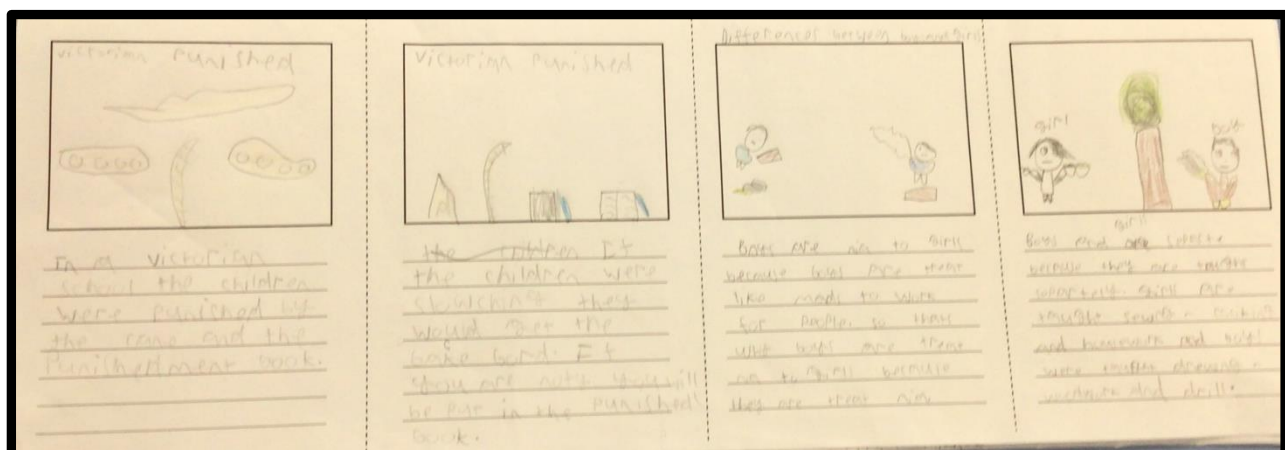 victorian Punished
In a victorian
school the children
were punished by
the cane and the
Punishettment book.
victorian Punished
the children If
the children were
slowching they
would get the
bake bord. If
you are noty you will
be put in the punished
book.
Differences between boys and girls
Boys are to girls
because boys are treat
like mads to work
for People. so thats
why boys are treat
to girls because
they are treat
girl
boy
girls
Boys and are
because they are taught
girls are
taught
and housework and boys
were taught
and drill.